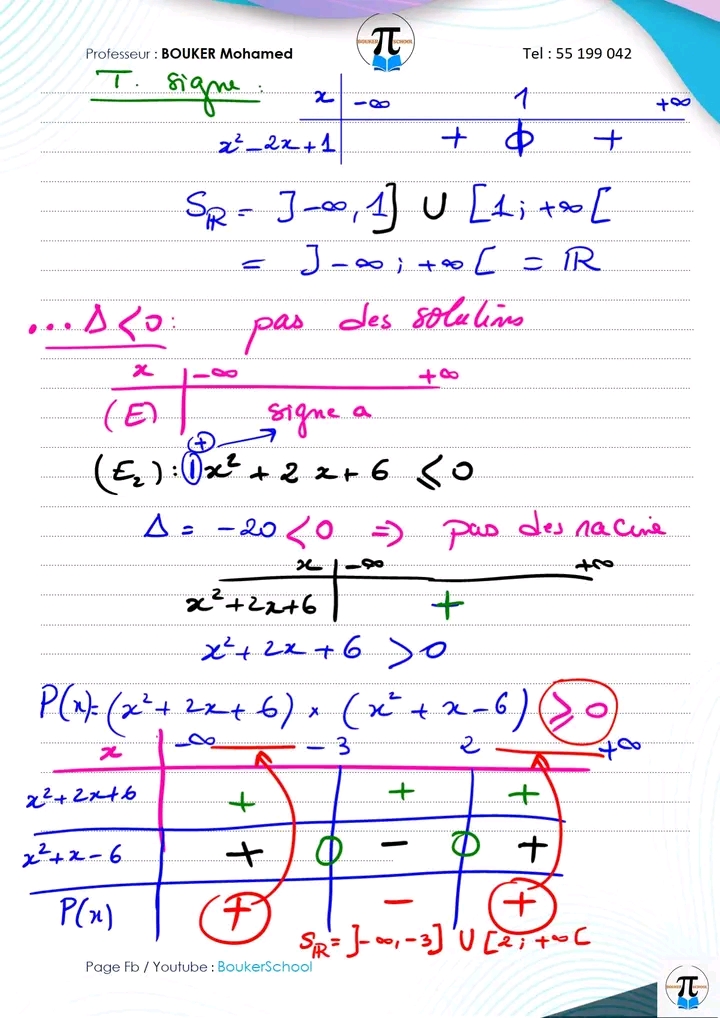 BOUKER SCHOOL
Professeur : BOUKER Mohamed Tel : 55 199 042
T. signe :
x -∞ 1 +∞
x² - 2x + 1 + 0 +
S_ℝ = ]-∞, 1] ∪ [1; +∞[
= ]-∞; +∞[ = ℝ
... Δ < 0 : pas des solutions
x -∞ +∞
(E) signe a
(+)
(E₂) : 1x² + 2x + 6 ⩽ 0
Δ = -20 < 0 ⇒ pas des racine
x -∞ +∞
x² + 2x + 6 +
x² + 2x + 6 > 0
P(x) = (x² + 2x + 6) × (x² + x - 6) ⩾ 0
x -∞ -3 2 +∞
x² + 2x + 6 + + +
x² + x - 6 + 0 - 0 +
P(x) + - +
S_ℝ = ]-∞, -3] ∪ [2; +∞[
Page Fb / Youtube : BoukerSchool
BOUKER SCHOOL